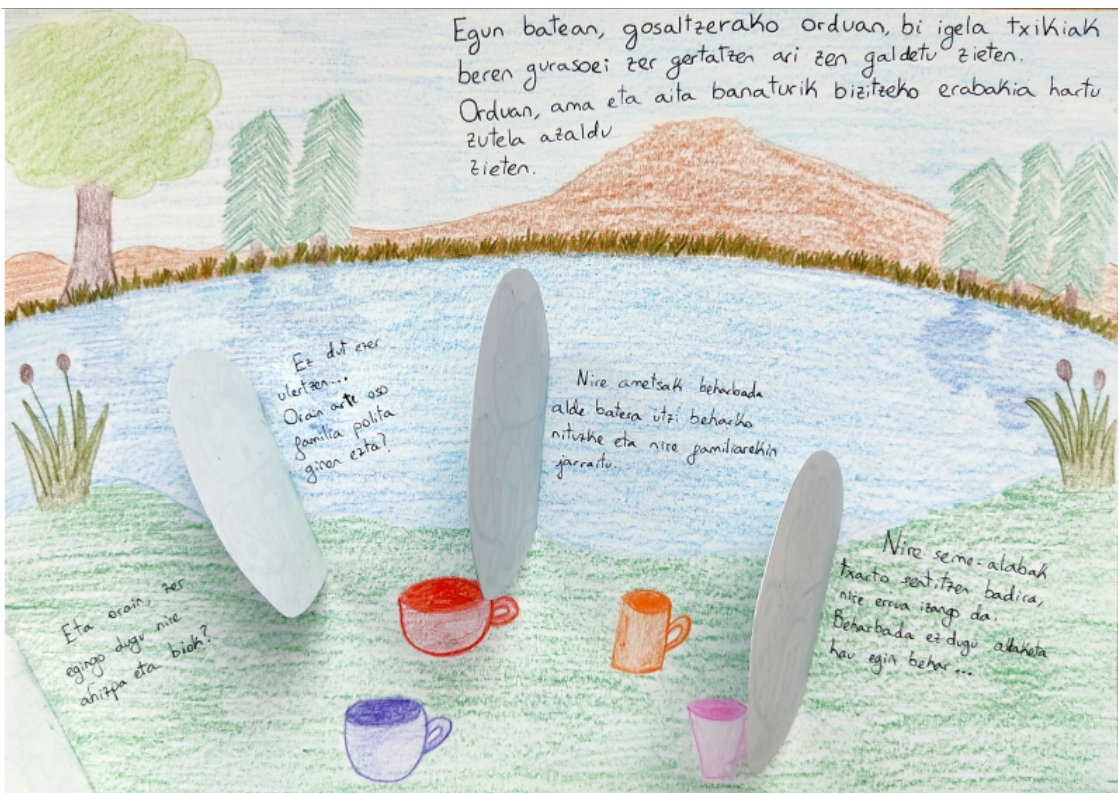 Egun batean, gosaltzerako orduan, bi igela txikiak
beren gurasoei zer gertatzen ari zen galdetu zieten.
Orduan, ama eta aita banaturik bizitzeko erabakia hartu
zutela azaldu
zieten.
Ez dut ezer
ulertzen...
Orain arte oso
familia polita
ginen ezta?
Nire ametsak beharbada
alde batera utzi beharko
nituzke eta nire familiarekin
jarraitu.
Nire seme-alabak
txarto sentitzen badira,
nire errua izango da.
Beharbada ez dugu aldaketa
hau egin behar...
Eta orain, zer
egingo dugu nire
ahizpa eta biok?